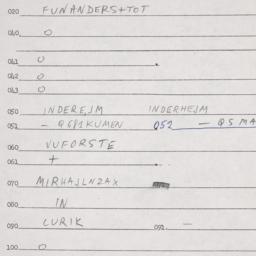 020 FUNANDERS+TOT
040 O
041 O
042 O
043 O
050 INDEREJM INDERHEJM
051 — Q681KUMEN 052 — Q5 MA
060 VUFORSTE
061 +
070 MIRHAJLNZAX
080 IN
090 LURIK 092 —
100 O